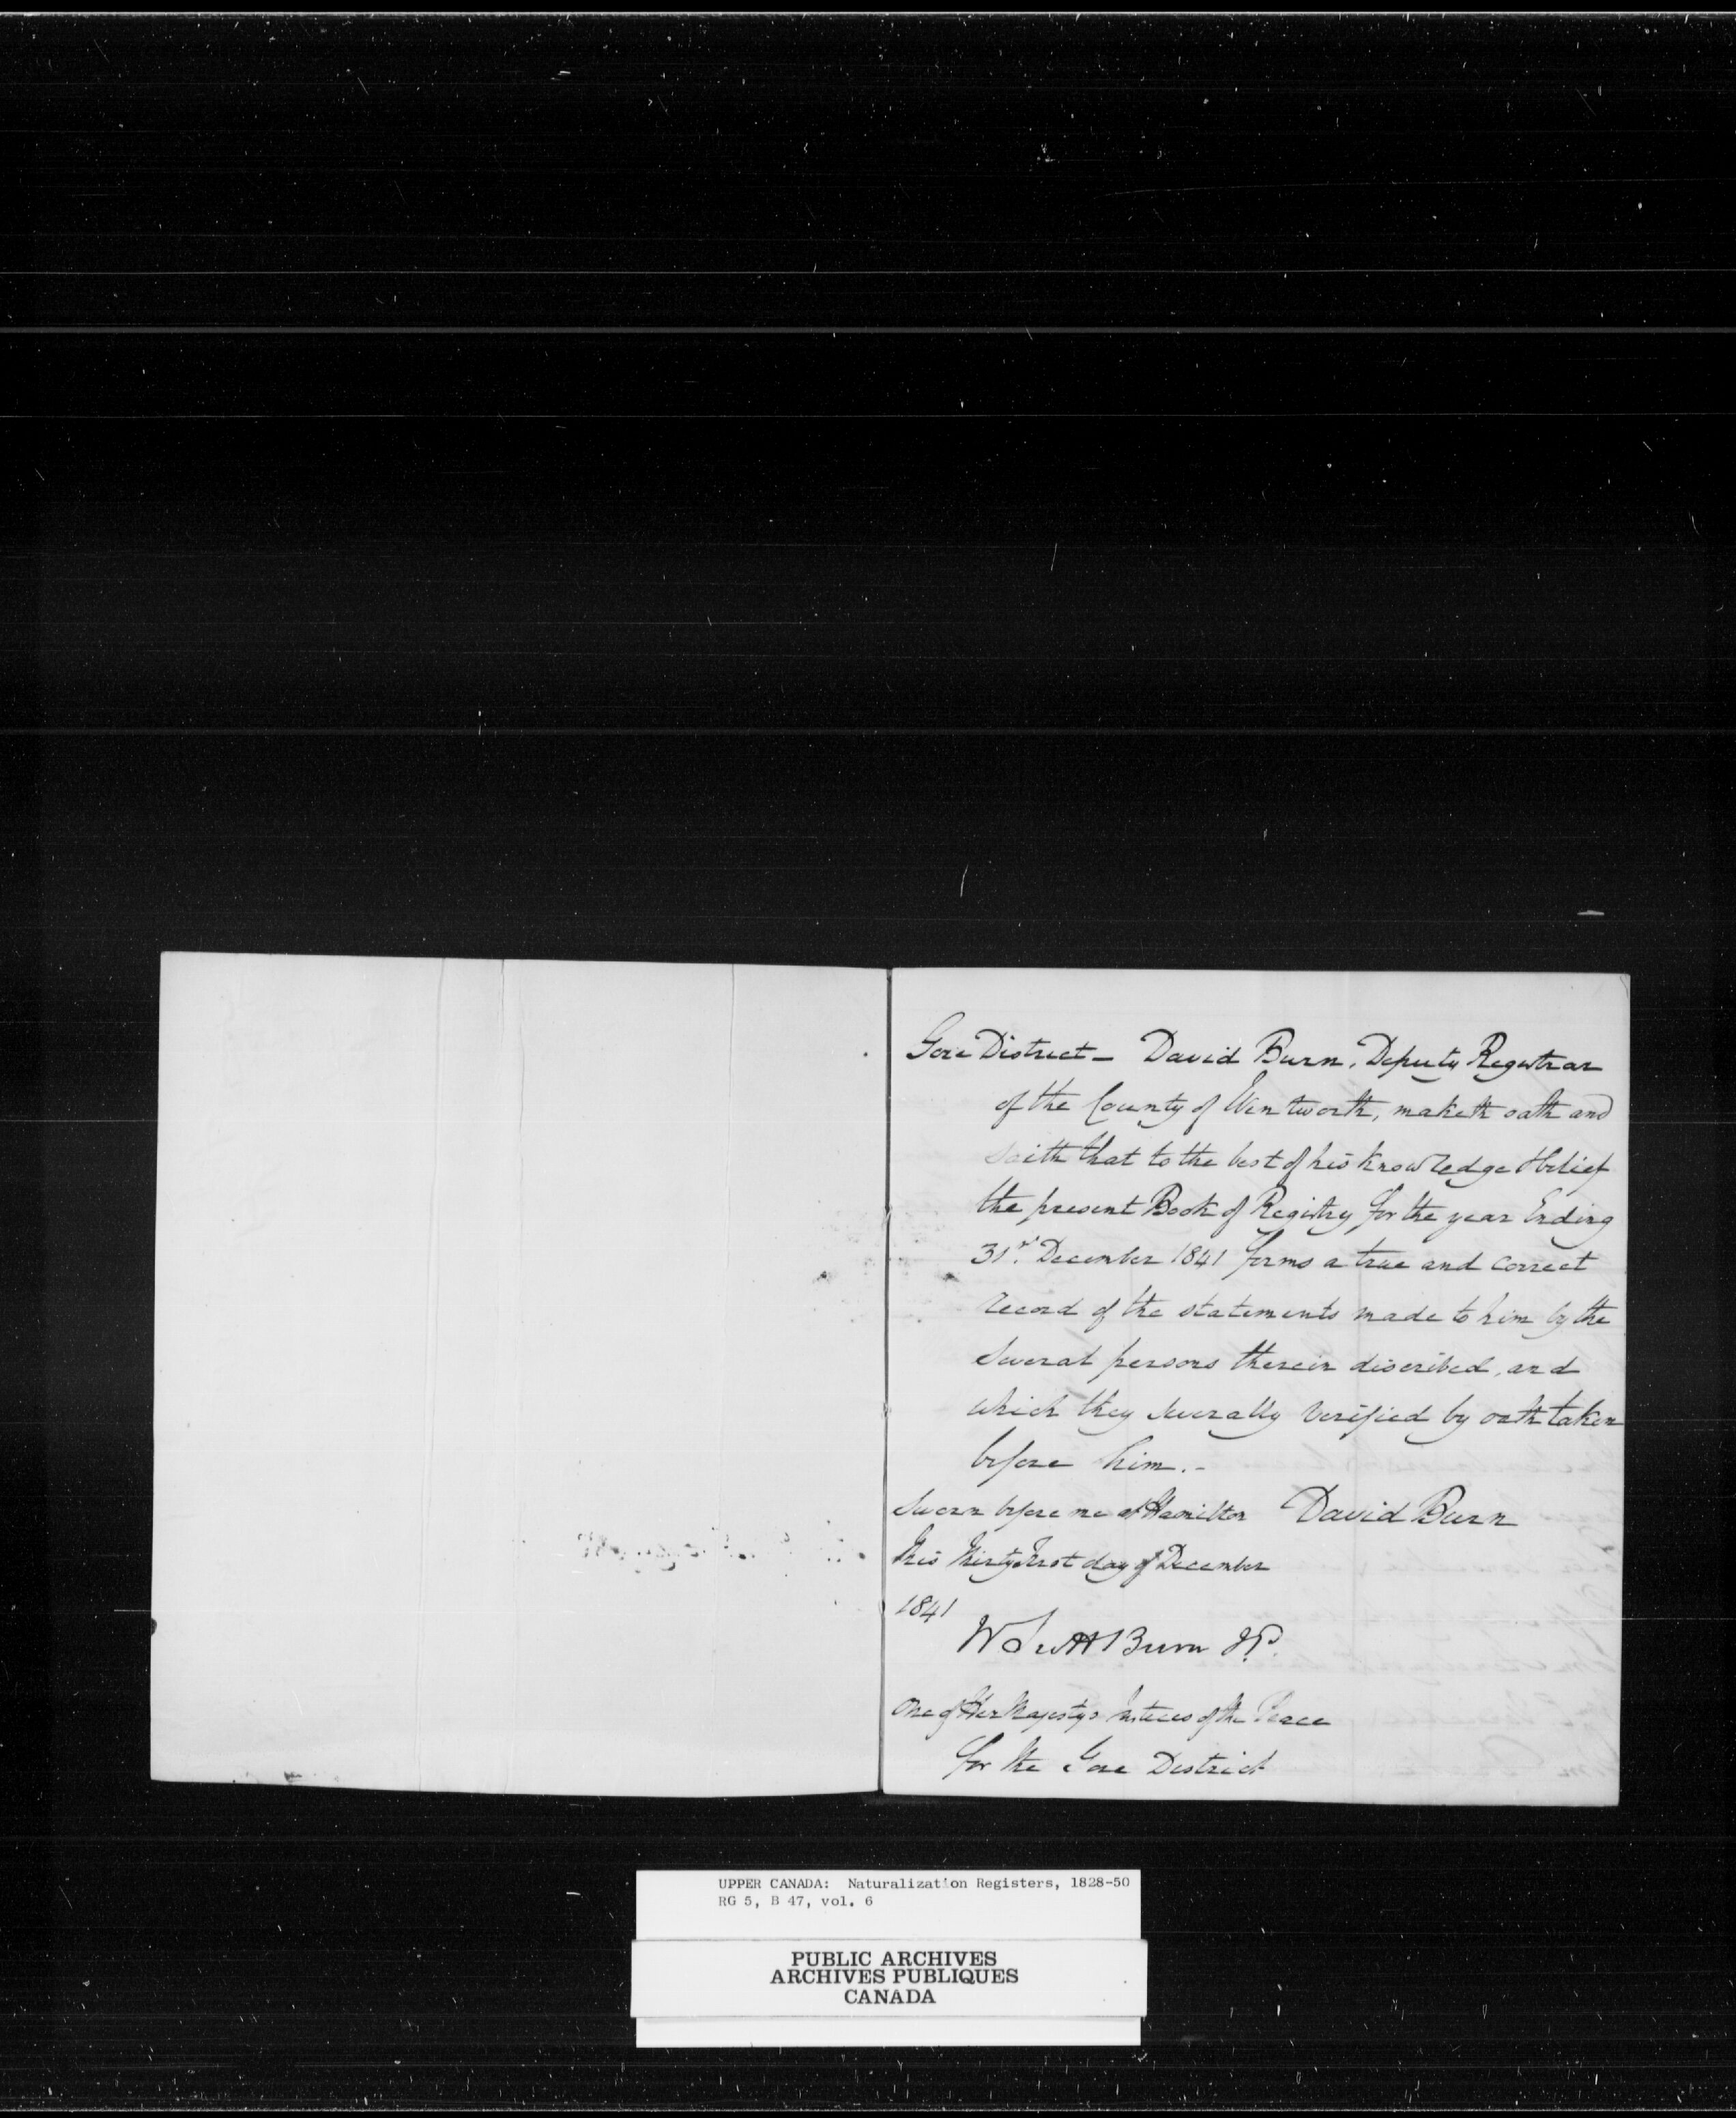 Gore District – David Burn, Deputy Registrar
of the County of Wentworth, maketh oath and
saith that to the best of his knowledge & belief
the present Book of Registry for the year Ending
31st December 1841 forms a true and correct
record of the statements made to him by the
several persons therein discribed, and
which they severally verified by oath taken
before him. -
Sworn before me at Hamilton David Burn
this thirty first day of December
1841
W Scott Burn J.P.
One of Her Majestys Justices of the Peace
for the Gore District
UPPER CANADA: Naturalization Registers, 1828-50
RG 5, B 47, vol. 6
PUBLIC ARCHIVES
ARCHIVES PUBLIQUES
CANADA